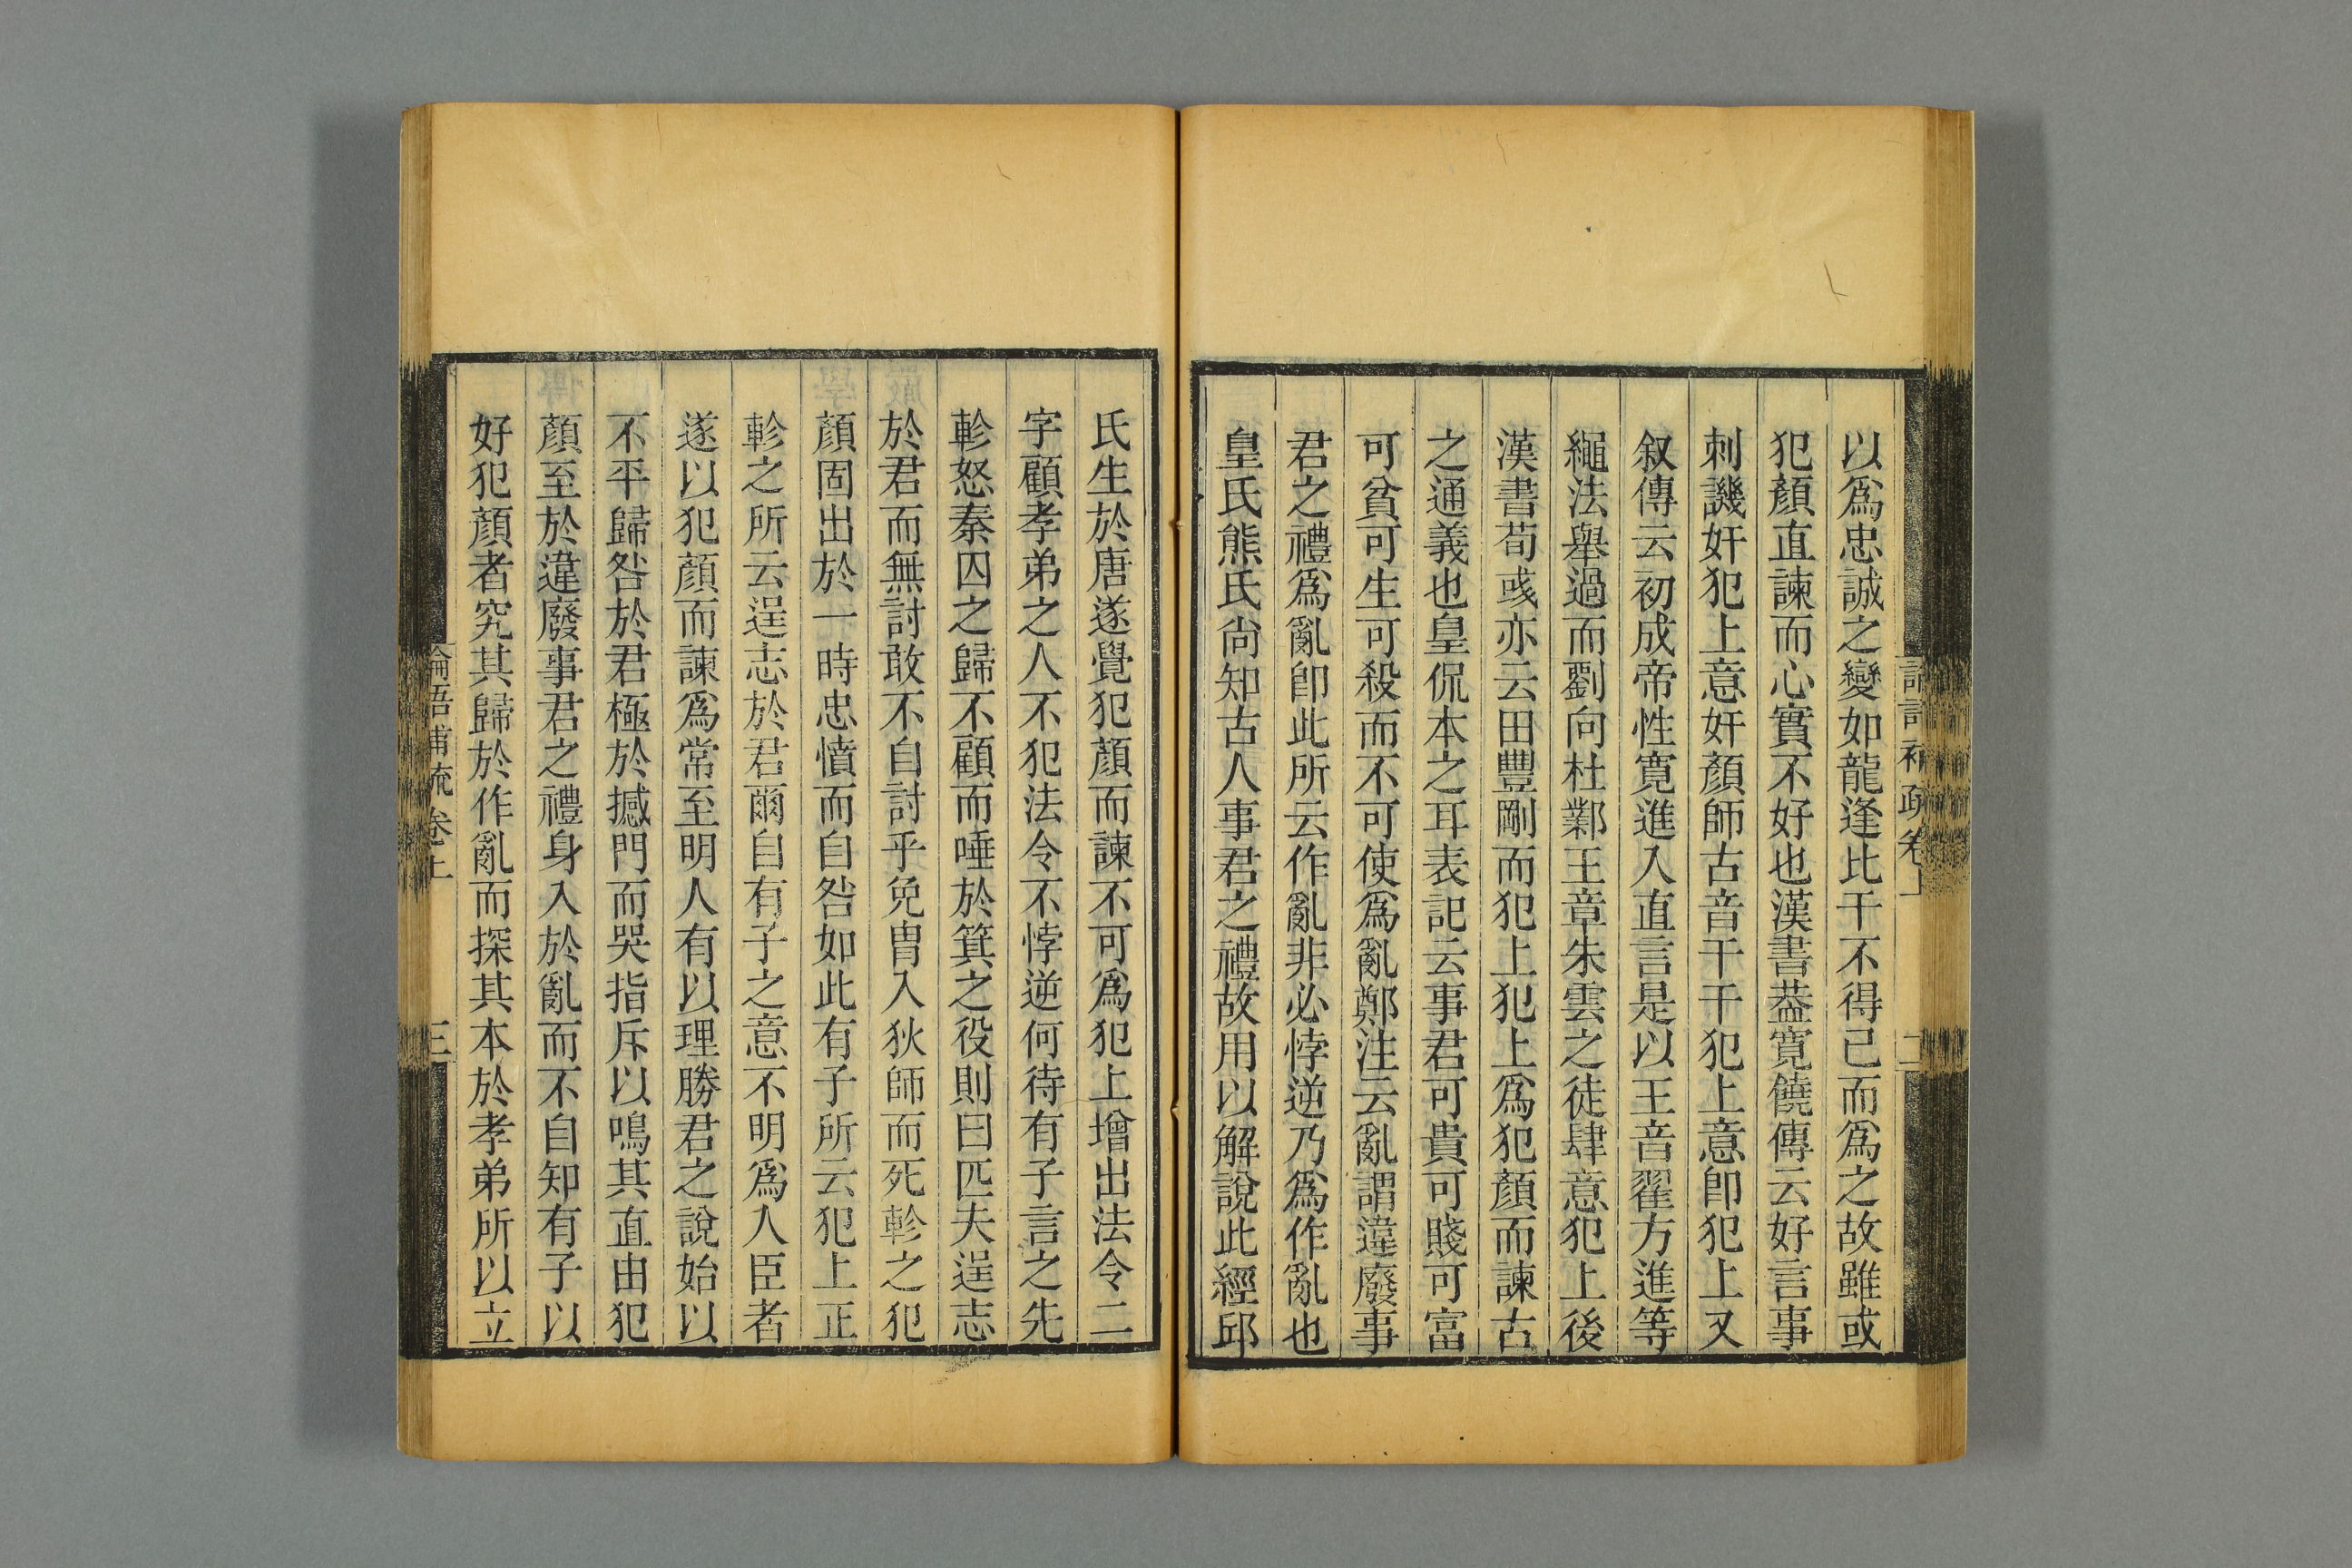 以爲忠誠之變如龍逢比干不得已而爲之故雖或
犯顏直諫而心實不好也漢書葢寬饒傳云好言事
刺譏奸犯上意奸顏師古音干干犯上意卽犯上又
叙傳云初成帝性寬進入直言是以王音翟方進等
繩法舉過而劉向杜鄴王章朱雲之徒肆意犯上後
漢書荀彧亦云田豐剛而犯上犯上爲犯顏而諫古
之通義也皇侃本之耳表記云事君可貴可賤可富
可貧可生可殺而不可使爲亂鄭注云亂謂違廢事
君之禮爲亂卽此所云作亂非必悖逆乃爲作亂也
皇氏熊氏尙知古人事君之禮故用以解說此經邱
氏生於唐遂覺犯顏而諫不可爲犯上增出法令二
字顧孝弟之人不犯法令不悖逆何待有子言之先
軫怒秦囚之歸不顧而唾於箕之役則曰匹夫逞志
於君而無討敢不自討乎免胄入狄師而死軫之犯
顏固出於一時忠憤而自咎如此有子所云犯上正
軫之所云逞志於君爾自有子之意不明爲人臣者
遂以犯顏而諫爲常至明人有以理勝君之說始以
不平歸咎於君極於撼門而哭指斥以鳴其直由犯
顏至於違廢事君之禮身入於亂而不自知有子以
好犯顏者究其歸於作亂而探其本於孝弟所以立
論語補疏卷上
三